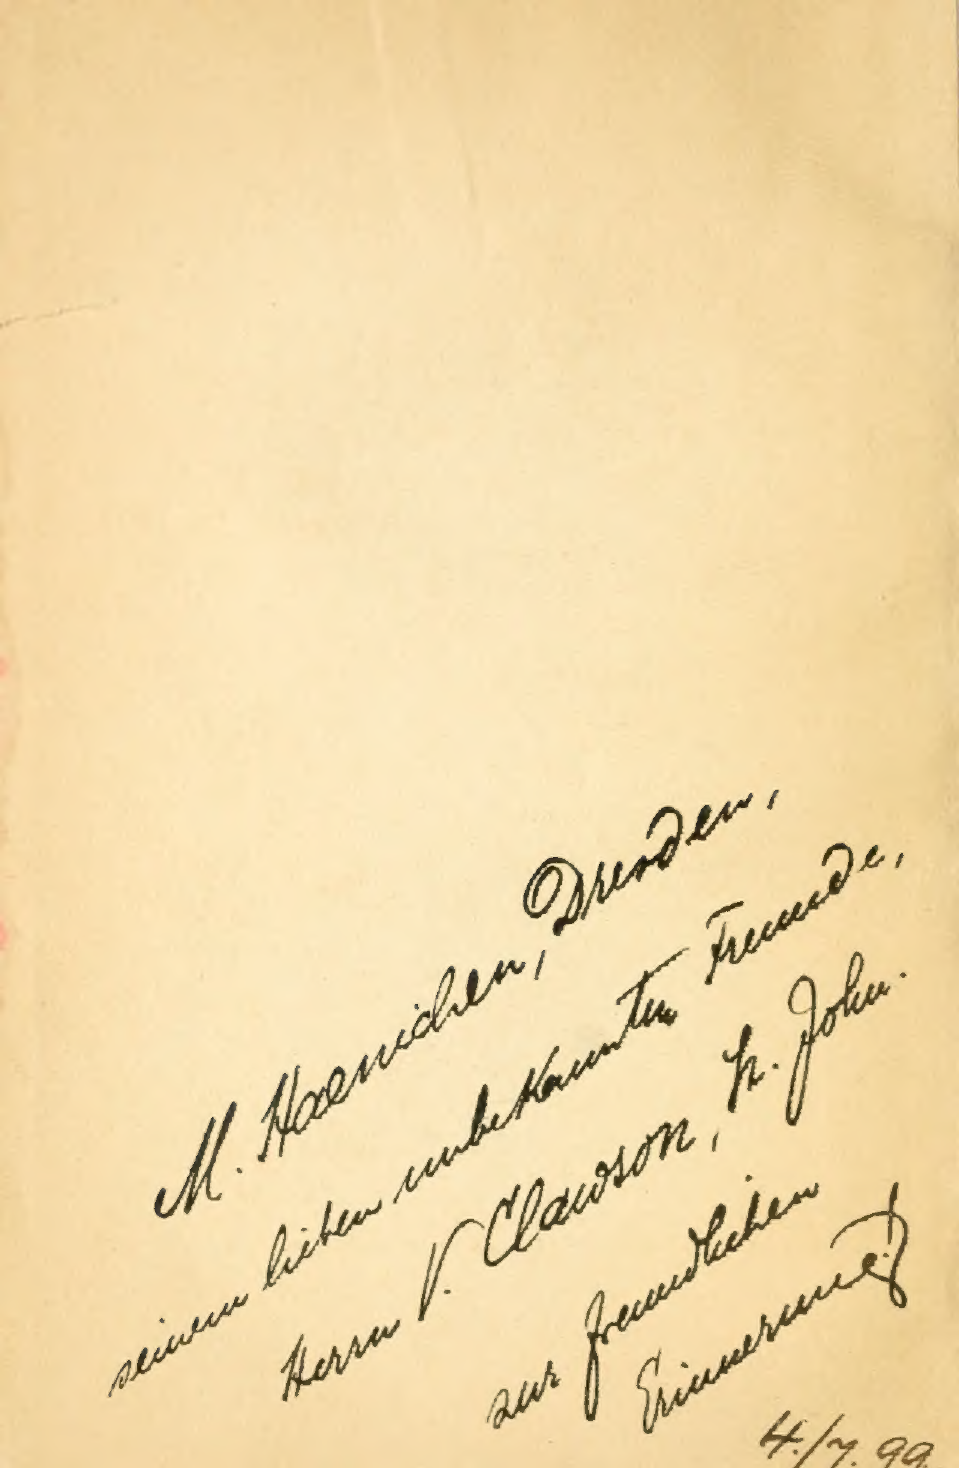 M. Haenichen, Dresden,
seinem lieben unbekannten Freunde,
Herrn V. Clawson, St. John.
zur freundlichen
Erinnerung!
4./7. 99.